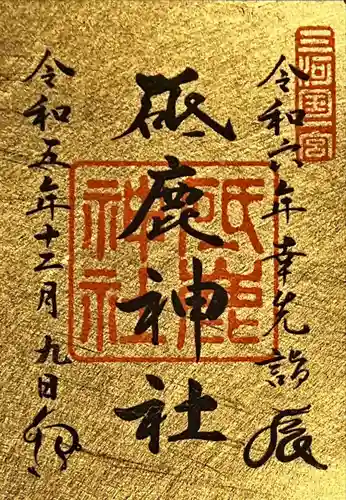 三河国一宮
令和六年幸先詣
辰
砥鹿神社
砥鹿神社
令和五年十二月九日